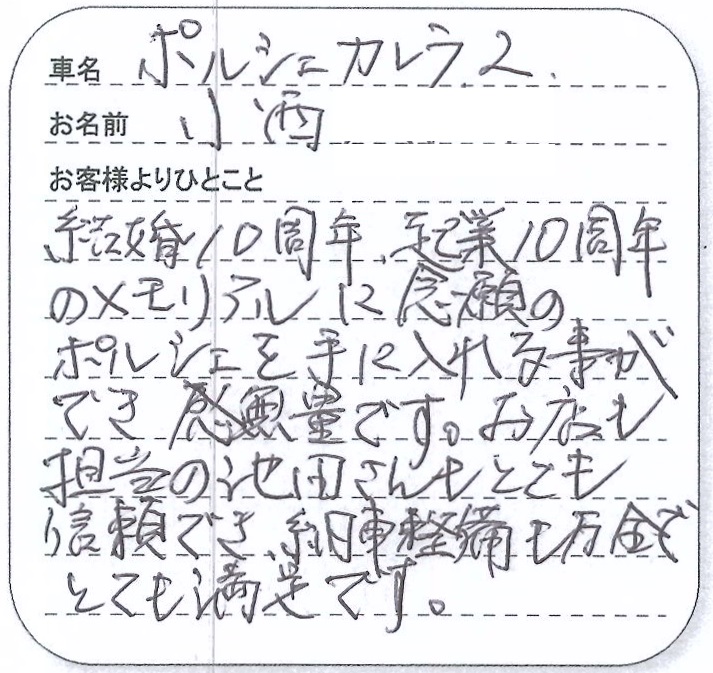 車名 ポルシェカレラ2.
お名前 小酒
お客様よりひとこと
結婚10周年、起業10周年
のメモリアルに念願の
ポルシェを手に入れる事が
でき感無量です。お店も
担当の池田さんもとても
信頼でき、納車整備も万全で
とても満足です。